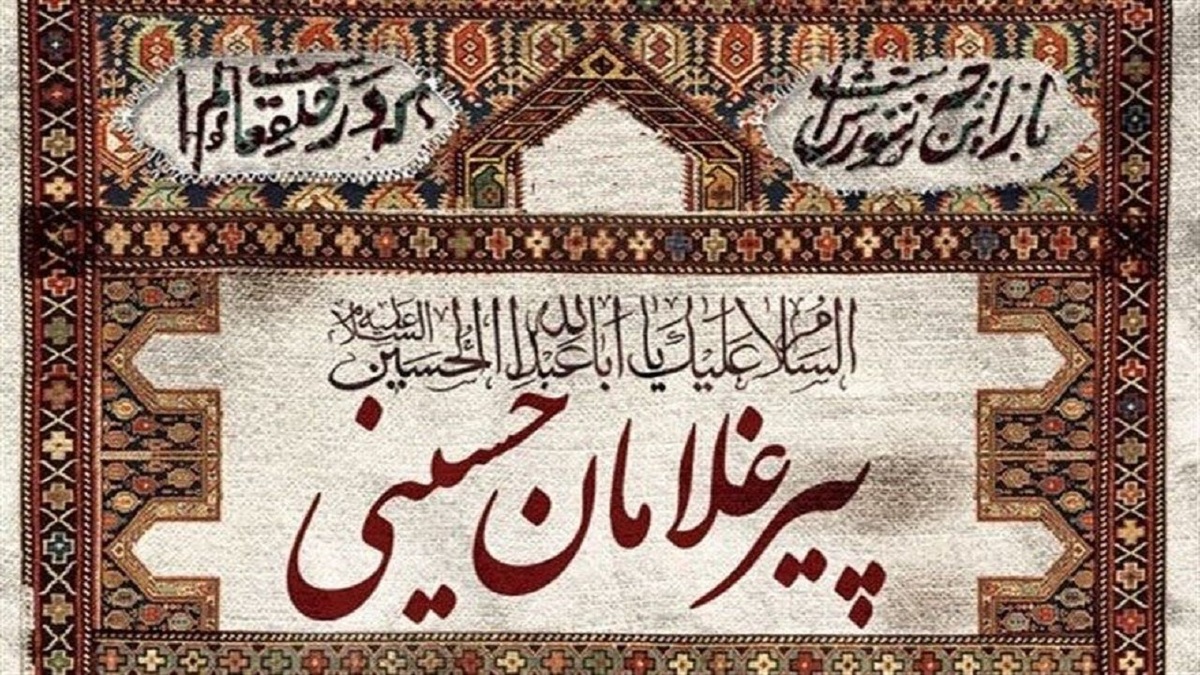 باز این چه شورش است
که در خلق عالم است
السلام علیک یا اباعبدالله الحسین علیه السلام
پیرغلامان حسینی